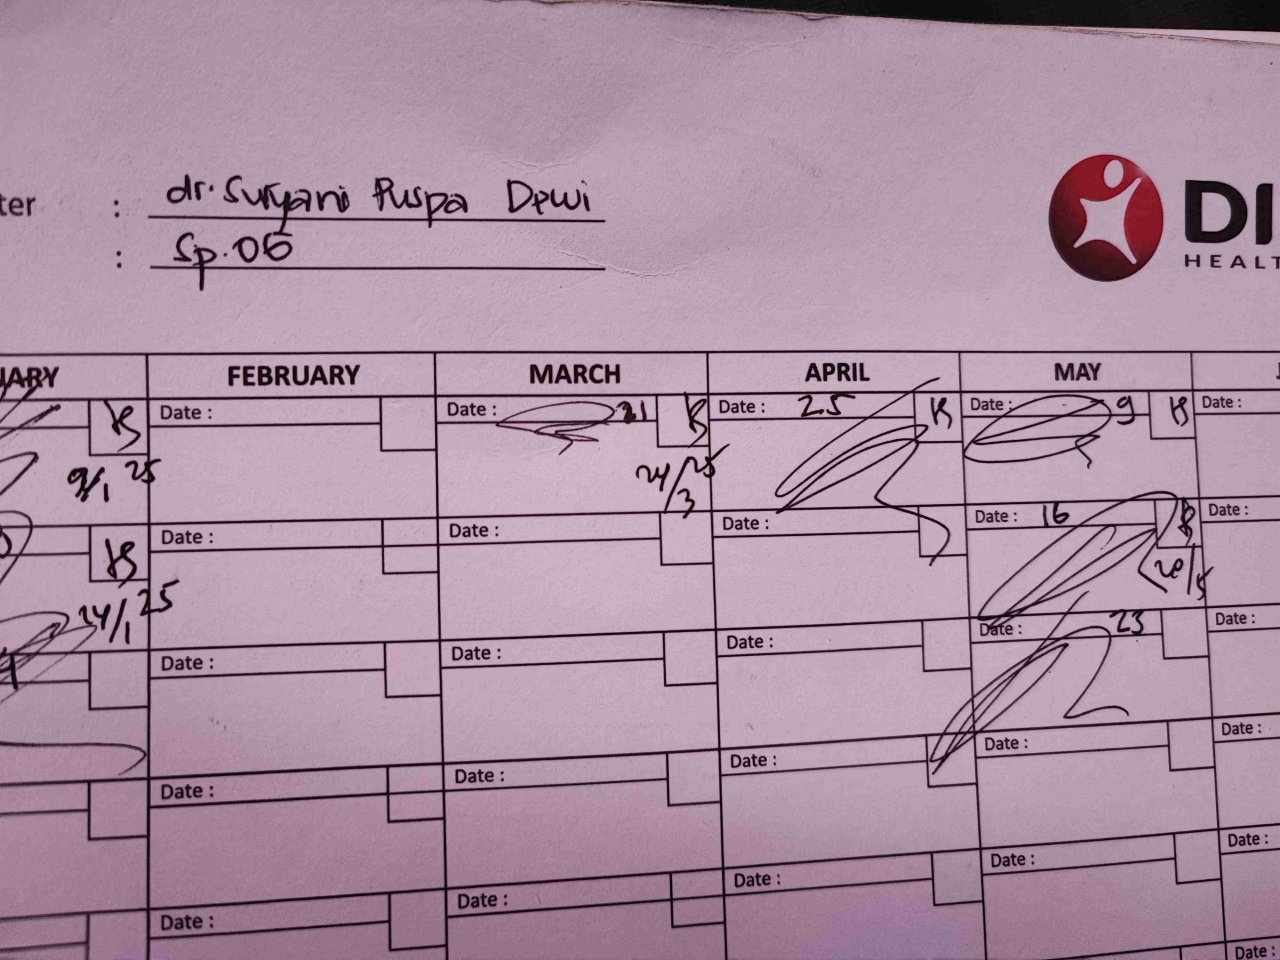 ter : dr. Suryani Puspa Dewi
: Sp.OG
DI
HEALT
UARY FEBRUARY MARCH APRIL MAY J
Date : Date : 21 Date : 25 Date : 9 Date :
9/1 25 24/3 25
Date : Date : Date : Date : 16 Date :
24/1 25 20/5
Date : Date : Date : Date : 23 Date :
Date : Date : Date : Date : Date :
Date : Date : Date : Date : Date :
Date :